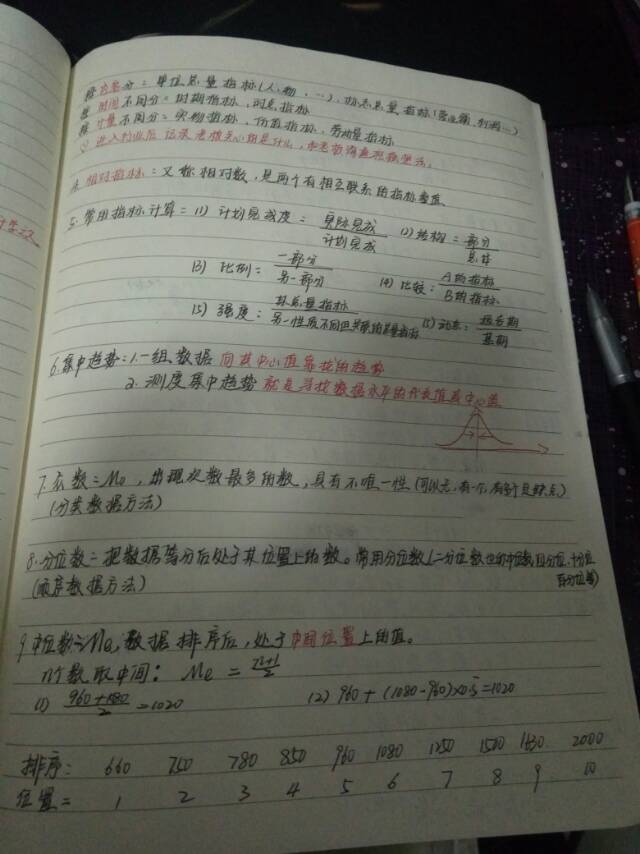 按内容分：单位总量指标(人、物…)、标志总量指标(营业额、利润…)
按时间不同分：时期指标、时点指标
按计量不同分：实物指标、价值指标、劳动量指标
4. 相对指标：又称相对数，是两个有相互联系的指标
5. 常用指标计算：(1) 计划完成度：实际完成/计划完成 (2) 结构：部分/总体
(3) 比例：一部分/另一部分 (4) 比较：A的指标/B的指标
(5) 强度：某总量指标/另一性质不同但关联的总量指标 (6) 动态：报告期/基期
6. 集中趋势：1. 一组数据向其中心值靠拢的趋势
2. 测度集中趋势就是寻找数据水平的代表值或中心值
7. 众数：Mo，出现次数最多的数，具有不唯一性(可以无，有一个，有多个是缺点)
(分类数据方法)
8. 分位数：把数据等分后处于某位置上的数。常用分位数(二分位数也叫中位数，四分位，十分位
百分位等)
(顺序数据方法)
9. 中位数：Me，数据排序后，处于中间位置上的值。
n个数取中间：Me = n+1/2
(1) 960+1080/2 =1020 (2) 960+(1080-960)×0.5=1020
排序： 660 750 780 850 960 1080 1250 1500 1630 2000
位置： 1 2 3 4 5 6 7 8 9 10